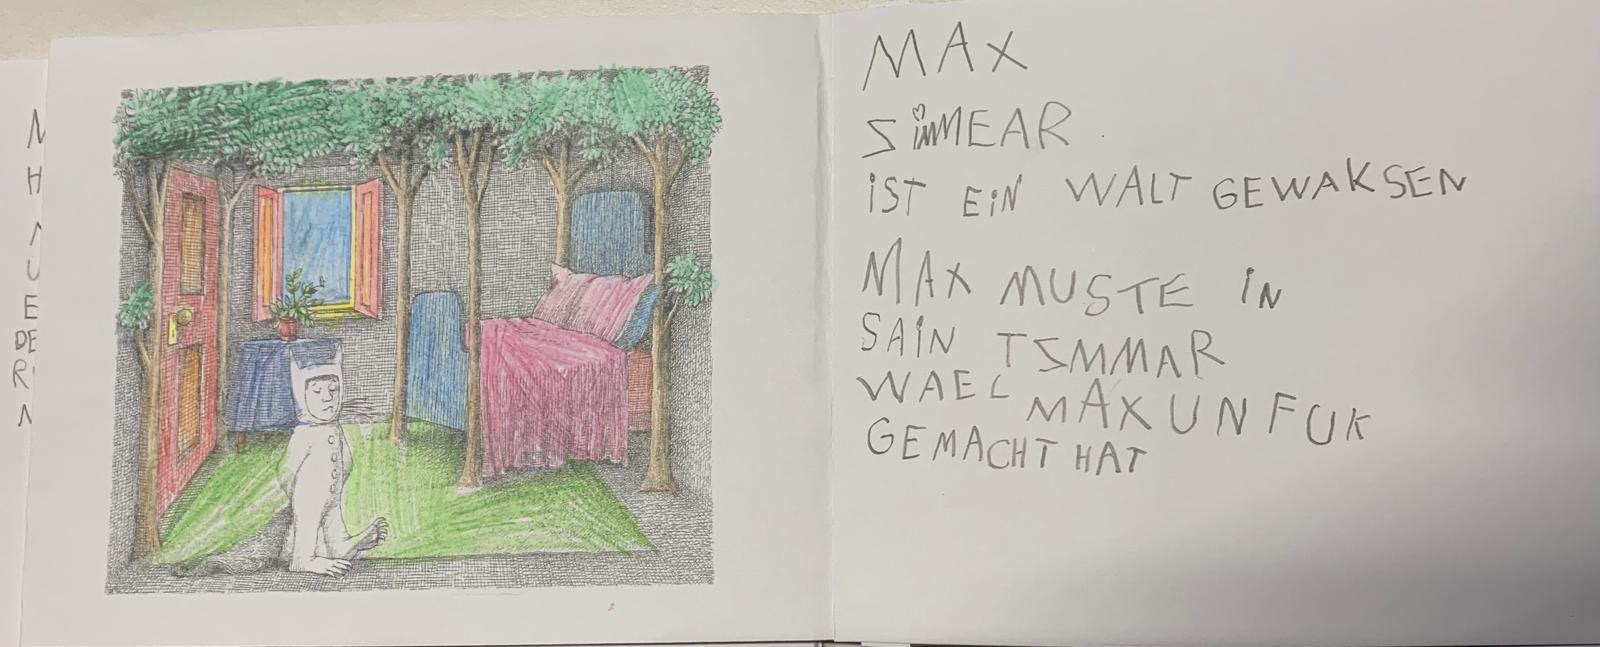 MAX
SiMMEAR
iST EiN WALT GEWAKSEN
MAX MUSTE iN
SAiN TSMMAR
WAEL MAX UNFUK
GEMACHT HAT